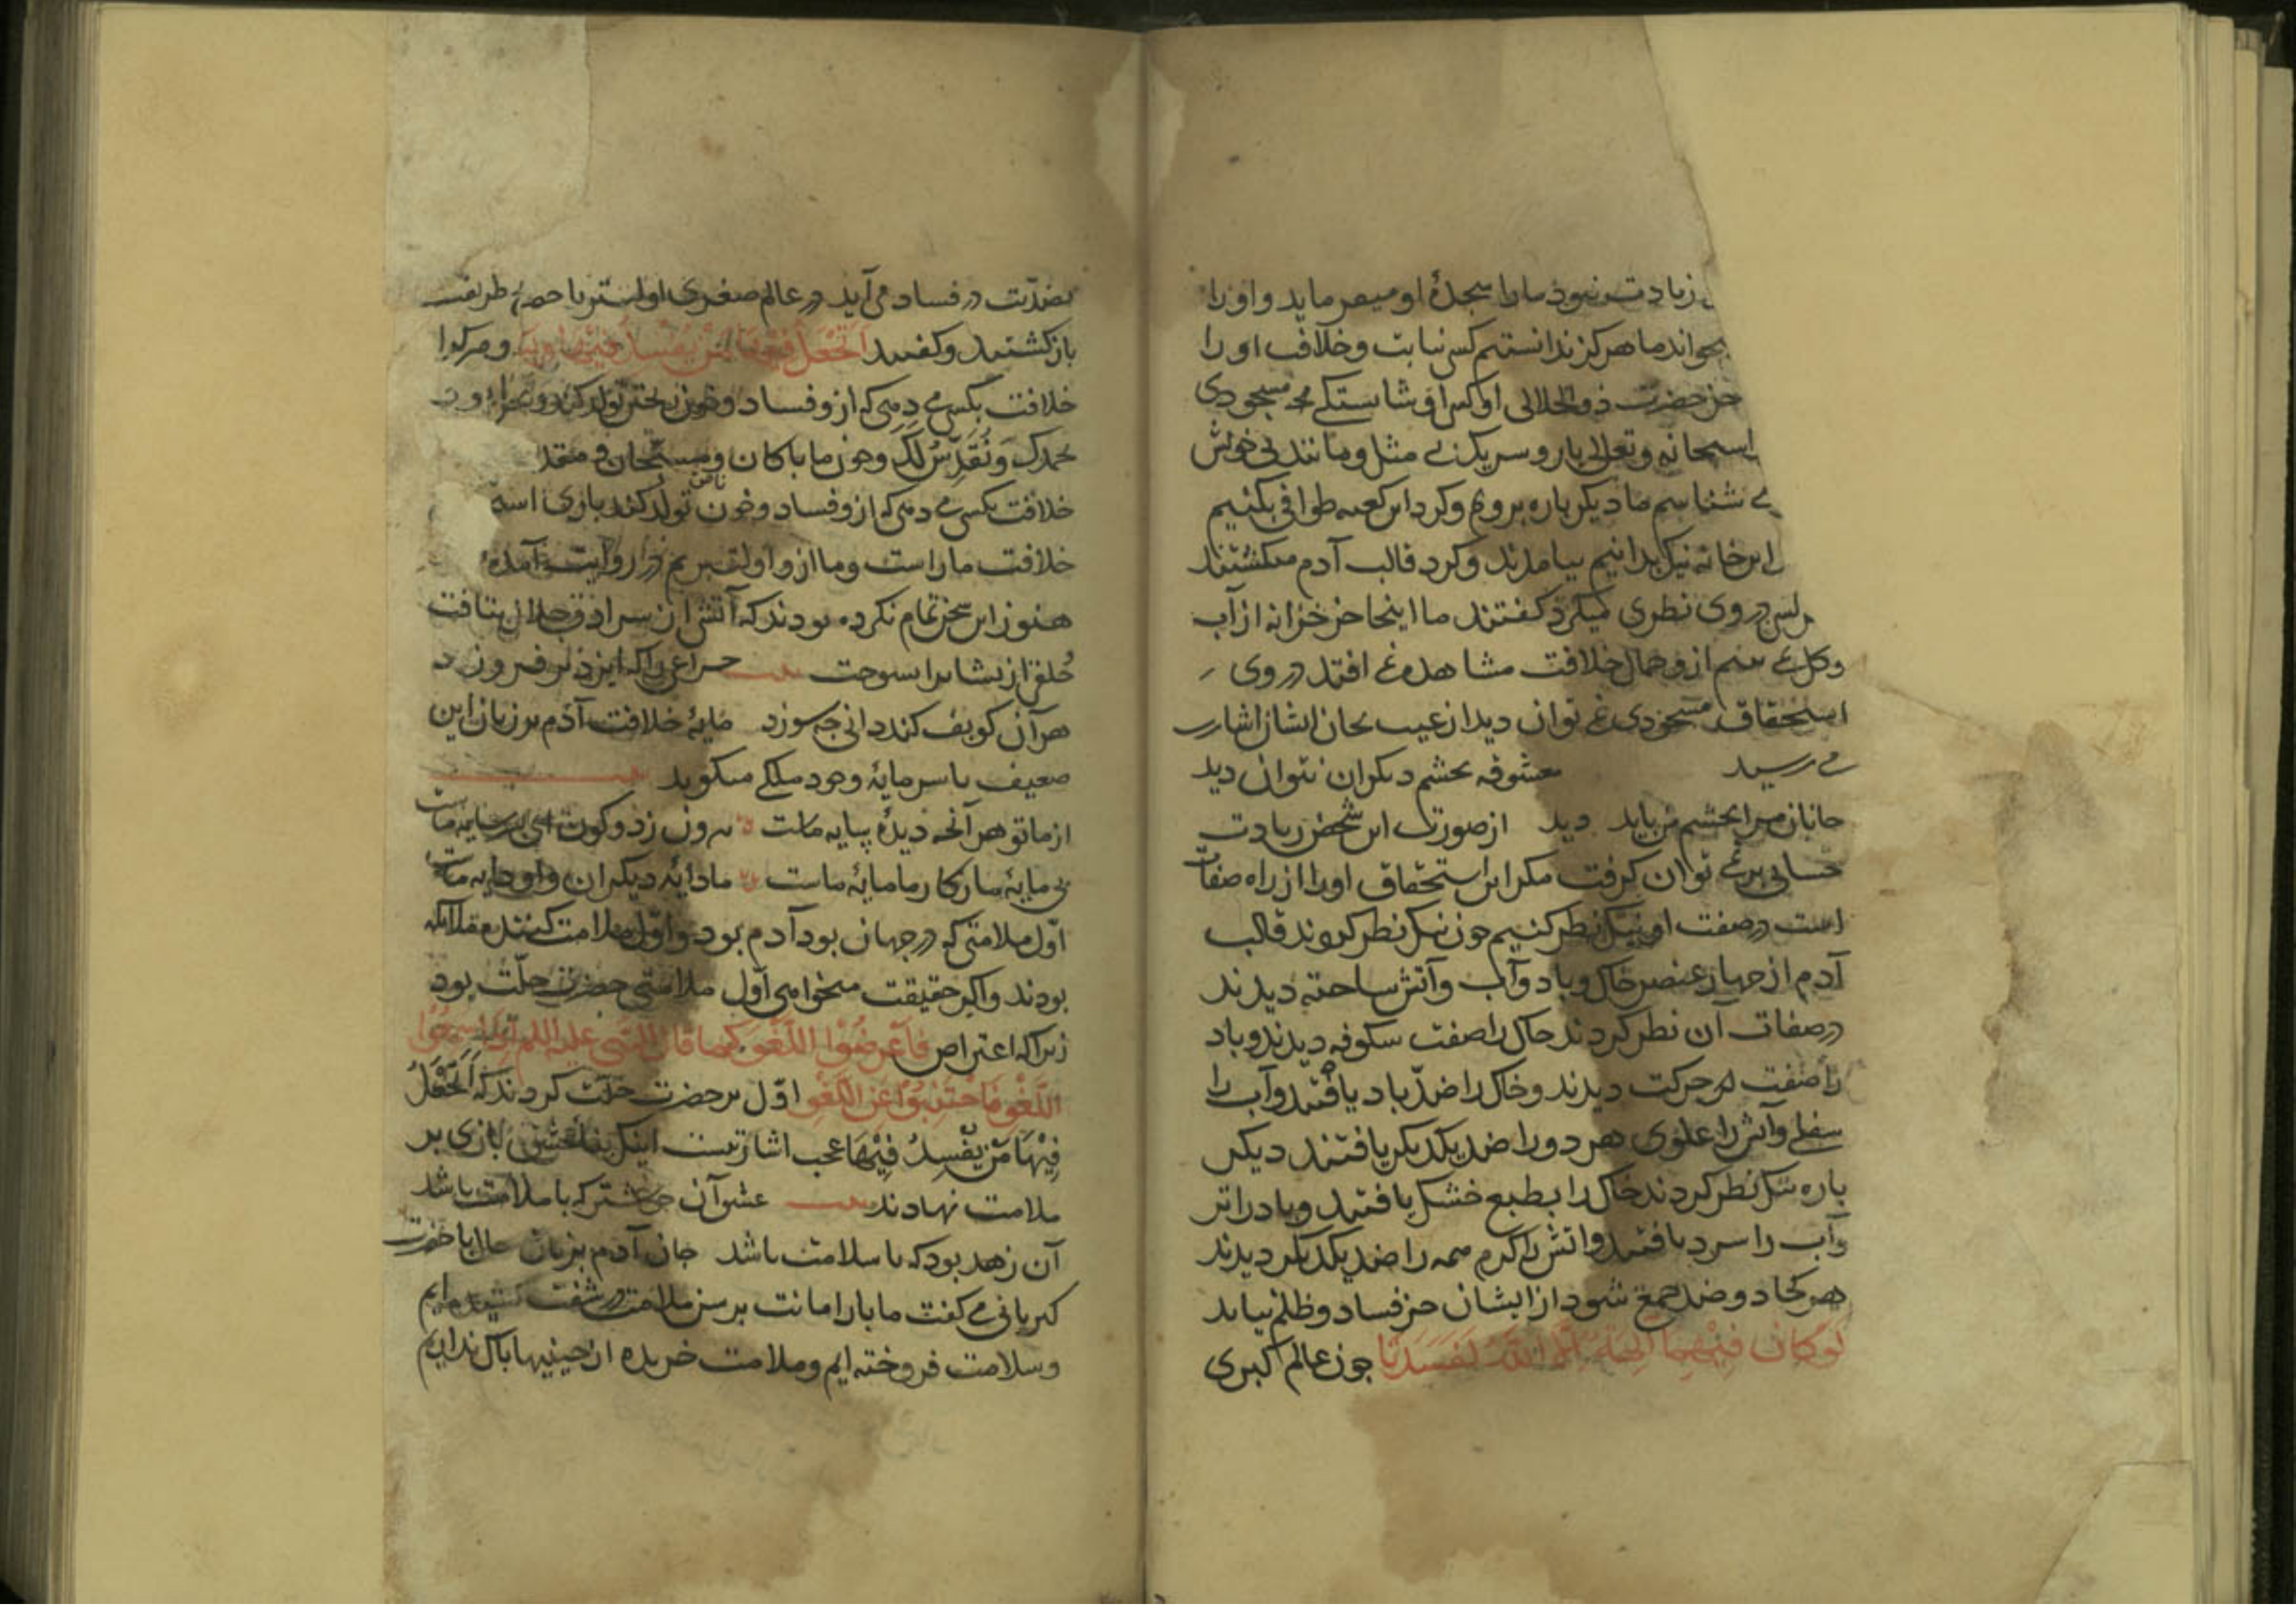 زیادت نبود ما را سجدهٔ او میفرماید و او را
بخواند ما هرکز ندانستیم کس نیابت و خلافت او را
جز حضرت ذو الجلالی او کس را و شایستکی مسجودی
سبحانه و تعالی یار و سریک بی مثل و مانند بی خویش
می شناسیم ما دیکر باره برویم و کرد این کعبه طوافی بکنیم
این خانه نیک بدانیم بیامدند و کرد قالب آدم میکشتند
هر کس در وی نظری میکرد کفتند ما اینجا جز خزانه از آب
و کل نمی بینیم از و جمال خلافت مشاهده نمی افتد در وی
استحقاق مسجودی نمی توان دید از غیب بجان ایشان اشارت
می رسید معشوقه بچشم دیکران نتوان دید
جانان مرا بچشم من باید دید از صورت این شخص زیادت
حسابی بر نمی توان کرفت مکر این استحقاق او را از راه صفات
است در صفت او نیک نظر کنیم چون نیک نظر کردند قالب
آدم از چهار عنصر خاک و باد و آب و آتش ساخته دیدند
در صفات آن نظر کردند خاک را صفت سکونه دیدند و باد
را صفت حرکت دیدند و خاک را ضدّ باد یافتند و آب را
سفلی و آتش را علوی هر دو را ضد یکدیکر یافتند دیکر
باره نیک نظر کردند خاک را بطبع خشک یافتند و باد را تر
و آب را سرد یافتند و آتش را کرم همه را ضد یکدیکر دیدند
هر کجا دو ضد جمع شود از ایشان جز فساد و ظلم نیاید
لَوْ کَانَ فِیْهِمَا اٰلِهَةٌ اِلَّا اللّٰهُ لَفَسَدَتَا چون عالم کبری
بضدّیت در فساد می آید در عالم صغری اولیتر با حضرت
باز کشتند و کفتند اَتَجْعَلُ فِیْهَا مَنْ یُفْسِدُ فِیْهَا
خلافت بکسی می دهی که از و فساد و خون ریختن تولد کند
بحمدک وَنُقَدِّسُ لَکَ و چون ما پاکان و مسبّحان و
خلافت بکسی می دهی که از و فساد و خون تولد کند
خلافت ما راست و ما از و اولی تریم در روایت آمده
هنوز این سخن تمام نکرده بودند که آتش از سرادق جلال بتافت
خلقی از یشان را بسوخت بیت چراغی را که ایزد بر فروزد
هر آن کو پف کند دانی چه سوزد مایهٔ خلافت آدم بر زبان این
ضعیف با سرمایهٔ وجود ملکی میکوید
از ما تو هر آنچه دیدهٔ پایه ماست بیرون ز دو کون ای پسر سایه ماست
بی مایهٔ ما ز کار ما مایهٔ ماست ما دایهٔ دیکران و او دایه ماست
اوّل ملامتی که در جهان بود آدم بود و اوّل ملامت کننده ملایکه
بودند و اکر حقیقت میخواهی اوّل ملامتی حضرت جلّت بود
زیرا که اعتراض فَاَعْرِضُوْا اللَّغْوَ کما قال النّبی علیه السلم اذا سَمِعْتُوا
اللَّغْوَ فَاجْتَنِبُوْا عَنِ اللَّغْوِ اوّل بر حضرت جلّت کردند که اَتَجْعَلُ
فِیْهَا مَنْ یُفْسِدُ فِیْهَا عجب اشارتیست اینک بناء عشق بازی بر
ملامت نهادند بیت عشق آن خوشتر که با ملامت باشد
آن زهد بود که با سلامت باشد جان آدم بزبان حال با حضرت
کبریائی می کفت ما بار امانت برسن ملامت در سفت کشیده ایم
و سلامت فروخته ایم و ملامت خریده از چنینها باک نداریم